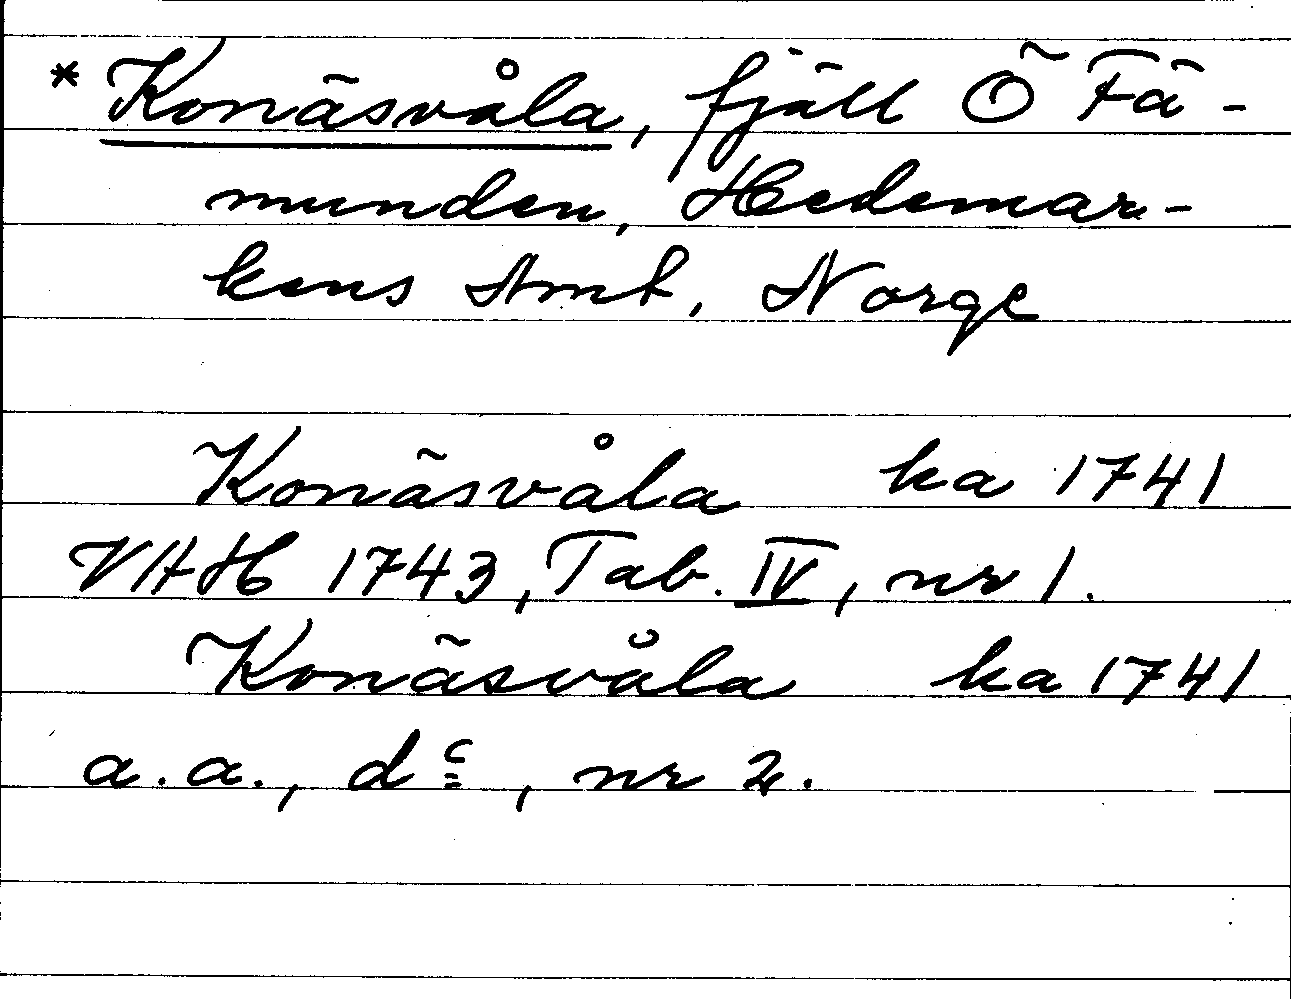 * Konäsvåla, fjäll Ö Fä-
munden, Hedemar-
kens Amt, Norge
Konäsvåla ka 1741
VHH 1743, Tab. IV, nr 1.
Konäsvåla ka 1741
a.a., d:c, nr 2.